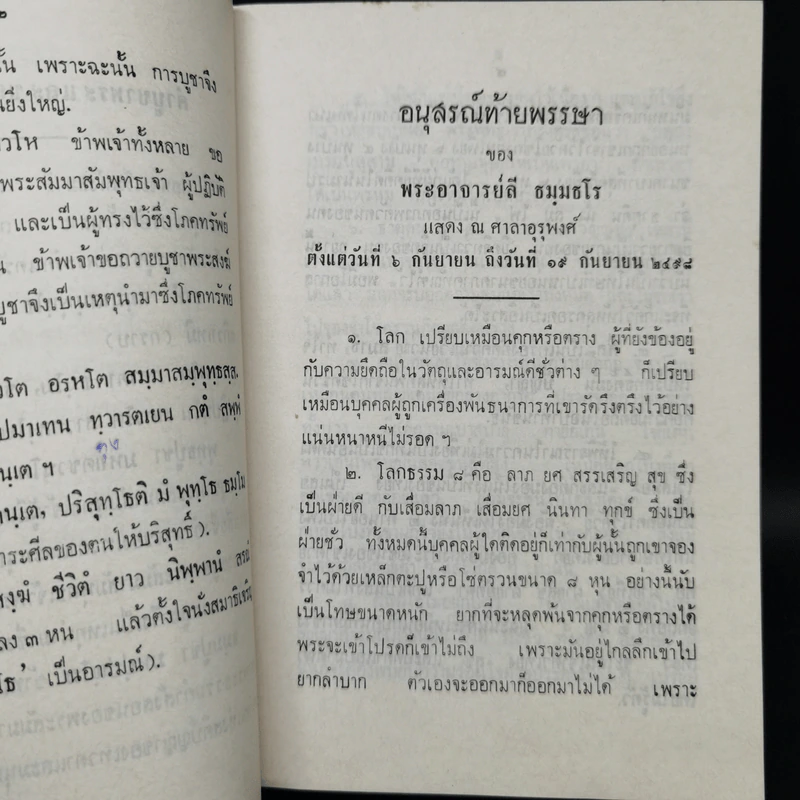 ๒
นั้น เพราะฉะนั้น การบูชาจึง
นยิ่งใหญ่.
วโห ข้าพเจ้าทั้งหลาย ขอ
พระสัมมาสัมพุทธเจ้า ผู้ปฏิบัติ
และเป็นผู้ทรงไว้ซึ่งโภคทรัพย์
น ข้าพเจ้าขอถวายบูชาพระสงฆ์
บูชาจึงเป็นเหตุนำมาซึ่งโภคทรัพย์
วโต อรหโต สมฺมาสมฺพุทฺธสฺส.
ปมาเทน ทฺวารตเยน กตํ สพฺพํ
นฺเต ฯ
นฺเต, ปริสุทฺโธติ มํ พุทฺโธ ธมฺโม
าระศีลของตนให้บริสุทธิ์).
สงฺฆํ ชีวิตํ ยาว นิพฺพานํ สรณํ
ลง ๓ หน แล้วตั้งใจนั่งสมาธิเจริญ
โธ' เป็นอารมณ์).
อนุสรณ์ท้ายพรรษา
ของ
พระอาจารย์ลี ธมฺมธโร
แสดง ณ ศาลาอุรุพงศ์
ตั้งแต่วันที่ ๖ กันยายน ถึงวันที่ ๑๙ กันยายน ๒๔๙๘
๑. โลก เปรียบเหมือนคุกหรือตราง ผู้ที่ยังข้องอยู่
กับความยึดถือในวัตถุและอารมณ์ดีชั่วต่าง ๆ ก็เปรียบ
เหมือนบุคคลผู้ถูกเครื่องพันธนาการที่เขารัดรึงตรึงไว้อย่าง
แน่นหนาหนีไม่รอด ฯ
๒. โลกธรรม ๘ คือ ลาภ ยศ สรรเสริญ สุข ซึ่ง
เป็นฝ่ายดี กับเสื่อมลาภ เสื่อมยศ นินทา ทุกข์ ซึ่งเป็น
ฝ่ายชั่ว ทั้งหมดนี้บุคคลผู้ใดติดอยู่ก็เท่ากับผู้นั้นถูกเขาจอง
จำไว้ด้วยเหล็กตะปูหรือโซ่ตรวนขนาด ๘ หุน อย่างนี้นับ
เป็นโทษขนาดหนัก ยากที่จะหลุดพ้นจากคุกหรือตรางได้
พระจะเข้าโปรดก็เข้าไม่ถึง เพราะมันอยู่ไกลลึกเข้าไป
ยากลำบาก ตัวเองจะออกมาก็ออกมาไม่ได้ เพราะ